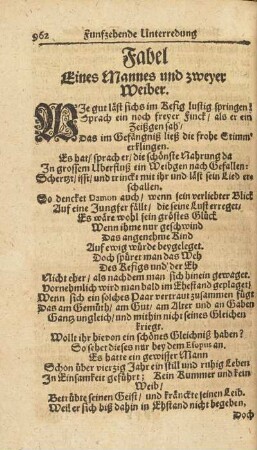 962 Funfzehende Unterredung
Fabel
Eines Mannes und zweyer
Weiber.
WJe gut läst sichs im Kefig lustig springen!
Sprach ein noch freyer Finck/ als er ein
Zeißgen sah/
Das im Gefängniß ließ die frohe Stimm'
erklingen.
Es hat/ sprach er/ die schönste Nahrung da
In grossem Uberfluß ein Weibgen nach Gefallen:
Schertzt/ isst/ und trinckt mit ihr und läst sein Lied er-
schallen.
So dencket Damon auch/ wenn sein verliebter Blick
Auf eine Jungfer fällt/ die seine Lust erreget/
Es wäre wohl sein gröstes Glück
Wenn ihme nur geschwind
Das angenehme Kind
Auf ewig würde beygeleget.
Doch spüret man das Weh
Des Kefigs und der Eh
Nicht eher/ als nachdem man sich hinein gewaget.
Vornehmlich wird man bald im Ehestand geplaget/
Wenn sich ein solches Paar vertraut zusammen fügt
Das am Gemüth/ am Gut/ am Alter und an Gaben
Gantz ungleich/ und mithin nicht seines Gleichen
kriegt.
Wollt ihr hievon ein schönes Gleichniß haben?
So sehet dieses nur bey dem Esopus an.
Es hatte ein gewisser Mann
Schon über viertzig Jahr ein still und ruhig Leben
In Einsamkeit geführt; Kein Kummer und kein
Weib/
Betrübte seinen Geist/ und kränckte seinen Leib.
Weil er sich biß dahin in Ehstand nicht begeben,
Doch